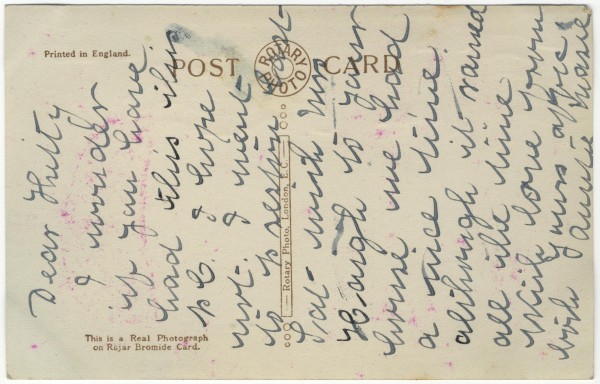 Printed in England.
POST CARD
ROTARY PHOTO
Rotary Photo, London, E.C.
This is a Real Photograph
on Rajar Bromide Card.
Dear
I wonder
if you have
had this
p.c. I hope
not. I went
to Preston last
Sat with Mr
Haigh to your
house we had
a nice time
although it rained
all the time
With love from
both yours affec
auntie